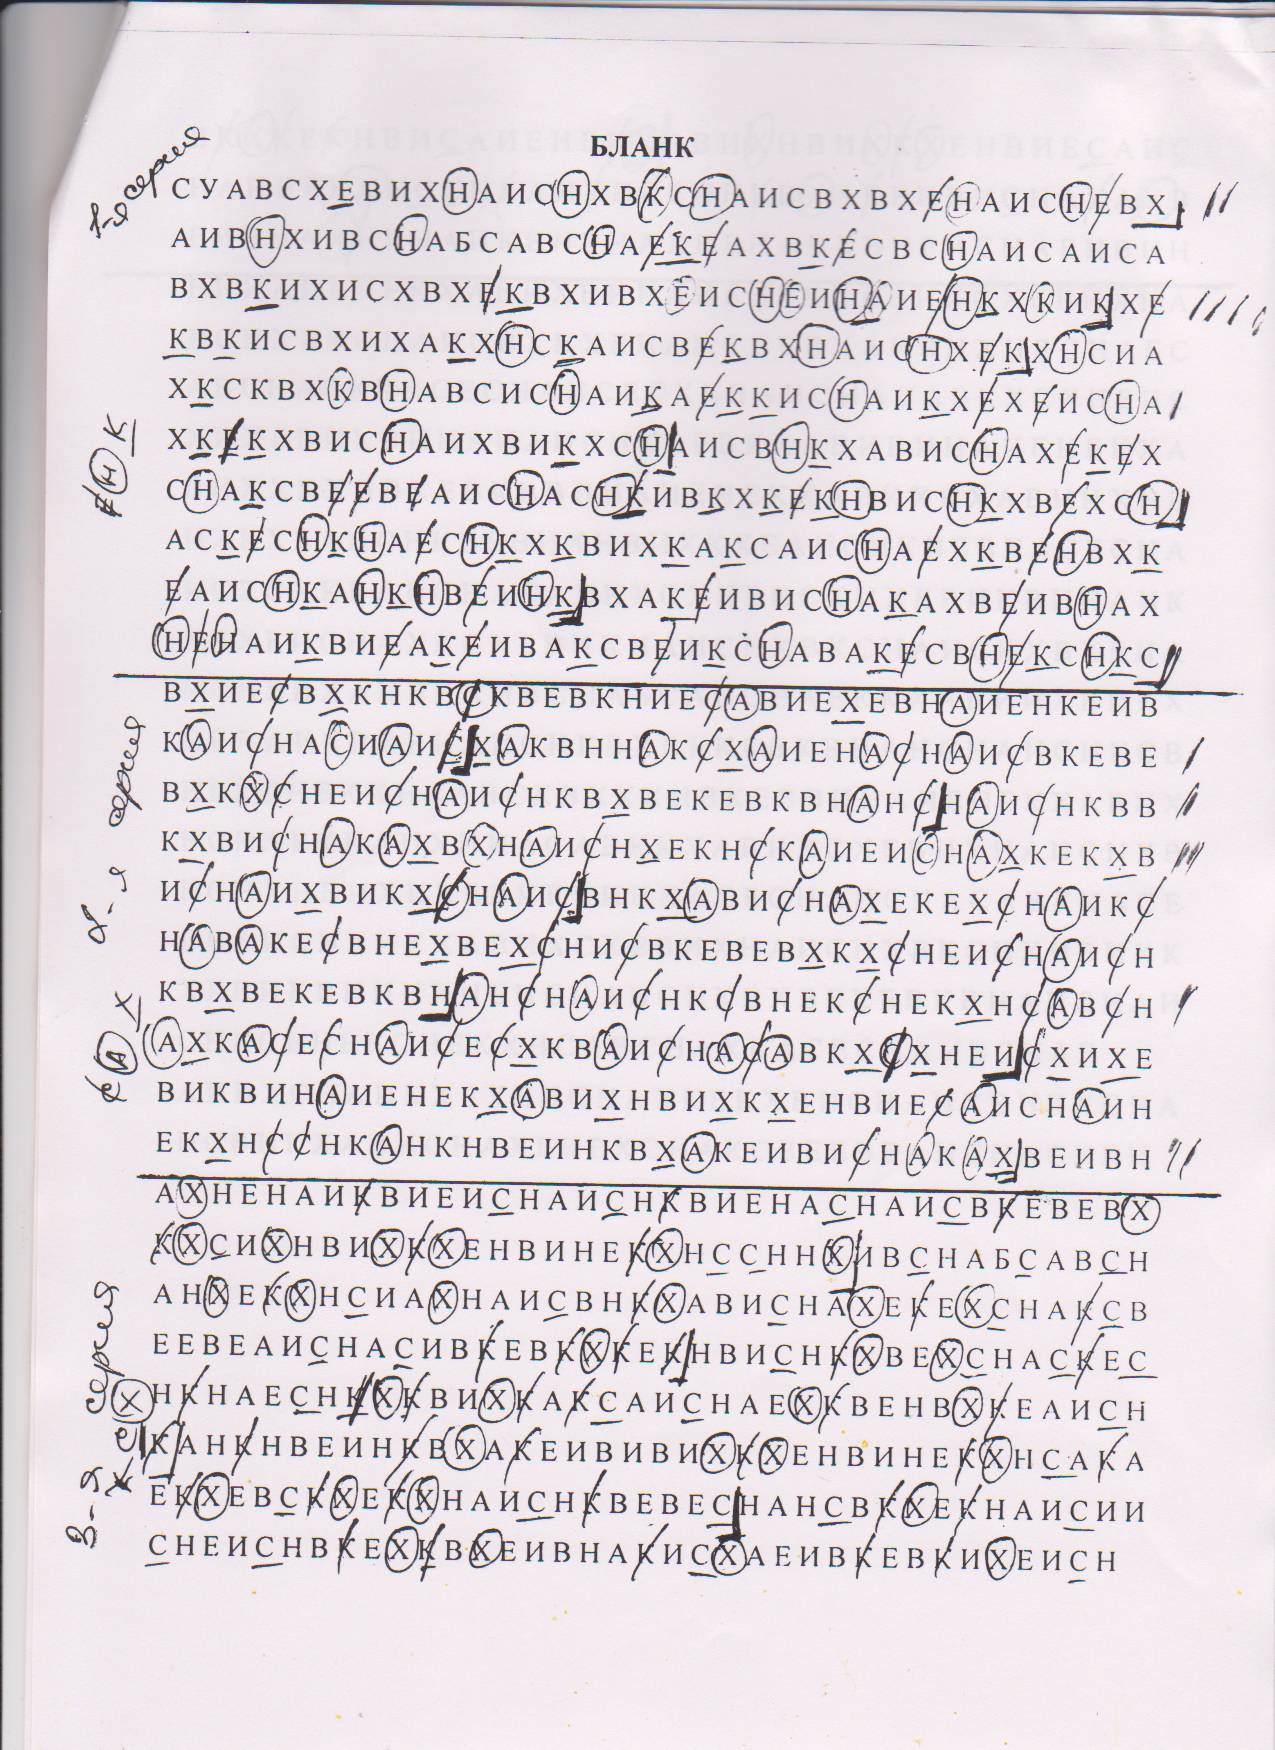 БЛАНК
1-я серия
СУАВСХЕВИХНАИСНХВКСНАИСВХВХЕНАИСНЕВХ
АИВНХИВСНАБСАВСНАЕКЕАХВКЕСВСНАИСАИСА
ВХВКИХИСХВХЕКВХИВХЕИСНЕИНАИЕНКХКИКХЕ
КВКИСВХИХАКХНСКАИСВЕКВХНАИСНХЕКХНСИА
ХКСКВХКВНАВСИСНАИКАЕККИСНАИКХЕХЕИСНА
Е Н К
ХКЕКХВИСНАИХВИКХСНАИСВНКХАВИСНАХЕКЕХ
СНАКСВЕЕВЕАИСНАСНКЕИВКХКЕКНВИСНКХВЕХСН
АСКЕСНКНАЕСНКХКВИХКАКСАИСНАЕХКВЕНВХК
ЕАИСНКАНКНВЕИНКВХАКЕИВИСНАКАХВЕИВНАХ
НЕНАИКВИЕАКЕИВАКСВЕИКСНАВАКЕСВНЕКСНКС
ВХИЕСВХКНКВСКВЕВКНИЕСАВИЕХЕВНАИЕНКЕИВ
2-я серия
КАИСНАСИАИСХАКВННАКСХАИЕНАСНАИСВКЕВЕ
ВХКХСНЕИСНАИСНКВХВЕКЕВКВНАНСНАИСНКВВ
КХВИСНАКАХВХНАИСНХЕКНСКАИЕИСНАХКЕКХВ
ИСНАИХВИКХСНАИСВНКХАВИСНАХЕКЕХСНАИКС
НАВАКЕСВНЕХВЕХСНИСВКЕВЕВХКХСНЕИСНАИСН
С А Х
КВХВЕКЕВКВНАНСНАИСНКСВНЕКСНЕКХНСАВСН
АХКАСЕСНАИСЕСХКВАИСНАСАВКХСХНЕИСХИХЕ
ВИКВИНАИЕНЕКХАВИХНВИХКХЕНВИЕСАИСНАИН
ЕКХНССНКАНКНВЕИНКВХАКЕИВИСНАКАХВЕИВН
АХНЕНАИКВИЕИСНАИСНКВИЕНАСНАИСВКЕВЕВХ
КХСИХНВИХКХЕНВИНЕКХНССННХИВСНАБСАВСН
3-я серия
АНХЕКХНСИАХНАИСВНКХАВИСНАХЕКЕХСНАКСВ
ЕЕВЕАИСНАСИВКЕВКХКЕКНВИСНКХВЕХСНАСКЕС
К С Х
НКНАЕСНКХКВИХКАКСАИСНАЕХКВЕНВХКЕАИСН
КАНКНВЕИНКВХАКЕИВИВИХКХЕНВИНЕКХНСАКА
ЕКХЕВСКХЕКХНАИСНКВЕВЕСНАНСВКХЕКНАИСИИ
СНЕИСНВКЕХКВХЕИВНАКИСХАЕИВКЕВКИХЕИСН